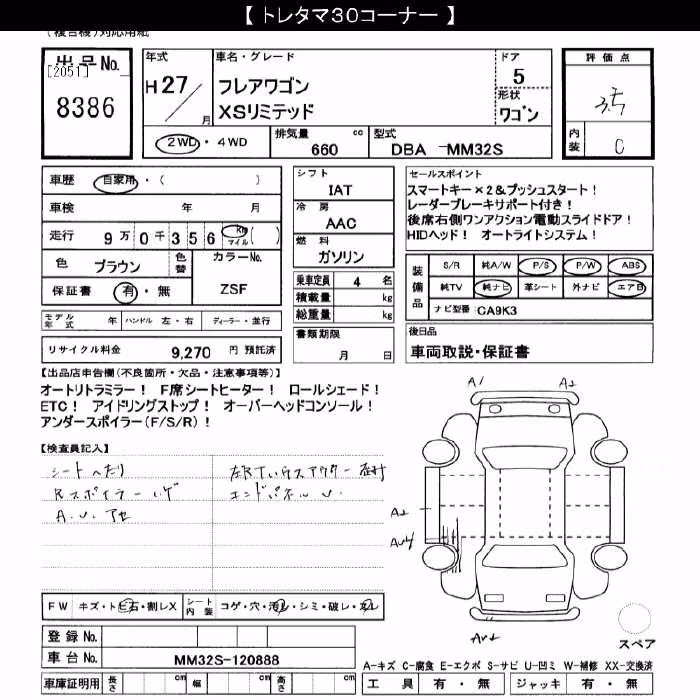 【 トレタマ30コーナー 】
(複合機)対応用紙
出品No.
[2051]
8386
年式
H 27 / 月
車名・グレード
フレアワゴン
XSリミテッド
ドア
5
形状
ワゴン
評価点
3.5
内装
C
2WD・4WD
排気量 cc
660
型式
DBA -MM32S
車歴 自家用・( )
車検 年 月
走行 9万 0千 3 5 6 km マイル ( )
色 ブラウン 色替 カラーNo.
保証書 有・無 ZSF
モデル年式 年 ハンドル 左・右 ディーラー・並行
リサイクル料金 9,270 円 預託済
シフト
IAT
冷房
AAC
燃料
ガソリン
乗車定員 4 名
積載量 kg
総重量 kg
書類期限
月 日
セールスポイント
スマートキー×2&プッシュスタート!
レーダーブレーキサポート付き!
後席右側ワンアクション電動スライドドア!
HIDヘッド! オートライトシステム!
装備品
S/R 純A/W P/S P/W ABS
純TV 純ナビ 革シート 外ナビ エアB
ナビ型番 CA9K3
後日品
車両取説・保証書
【出品店申告欄(不良箇所・欠品・注意事項等)】
オートリトラミラー! F席シートヒーター! ロールシェード!
ETC! アイドリングストップ! オーバーヘッドコンソール!
アンダースポイラー(F/S/R)!
【検査員記入】
シートヘタリ
Rスポイラーハゲ
エンドパネルU.
A.U.アセ
A1 A2
A2
AU4
AU2
スペア
FW キズ・トビ石・割レX シート内装 コゲ・穴・汚レ・シミ・破レ・スレ
登録No.
車台No. MM32S-120888
車庫証明用 長さ cm 幅 cm 高さ cm
A-キズ C-腐食 E-エクボ S-サビ U-凹ミ W-補修 XX-交換済
工具 有・無 ジャッキ 有・無